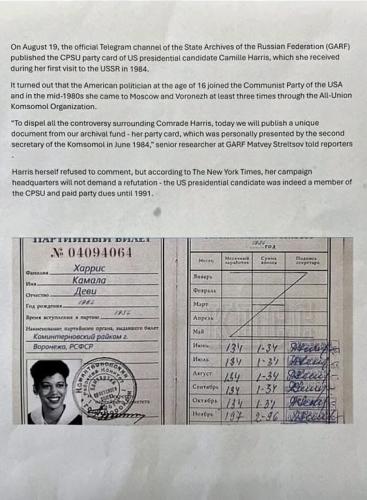 On August 19, the official Telegram channel of the State Archives of the Russian Federation (GARF)
published the CPSU party card of US presidential candidate Camille Harris, which she received
during her first visit to the USSR in 1984.
It turned out that the American politician at the age of 16 joined the Communist Party of the USA
and in the mid-1980s she came to Moscow and Voronezh at least three times through the All-Union
Komsomol Organization.
"To dispel all the controversy surrounding Comrade Harris, today we will publish a unique
document from our archival fund - her party card, which was personally presented by the second
secretary of the Komsomol in June 1984," senior researcher at GARF Matvey Streltsov told reporters
.
Harris herself refused to comment, but according to The New York Times, her campaign
headquarters will not demand a refutation - the US presidential candidate was indeed a member of
the CPSU and paid party dues until 1991.
ПАРТИЙНЫЙ БИЛЕТ
№ 04094064
Фамилия Харрис
Имя Камала
Отчество Деви
Год рождения
Время вступления в партию
Наименование партийного органа, выдавшего билет
Коминтерновский райком г.
Воронежа, РСФСР
год
Месяц Месячный заработок Сумма взноса Подпись секретаря
Январь
Февраль
Март
Апрель
Май
Июнь 134 1-34
Июль 134 1-34
Август 134 1-34
Сентябрь 134 1-34
Октябрь 134 1-34
Ноябрь 197 2-96